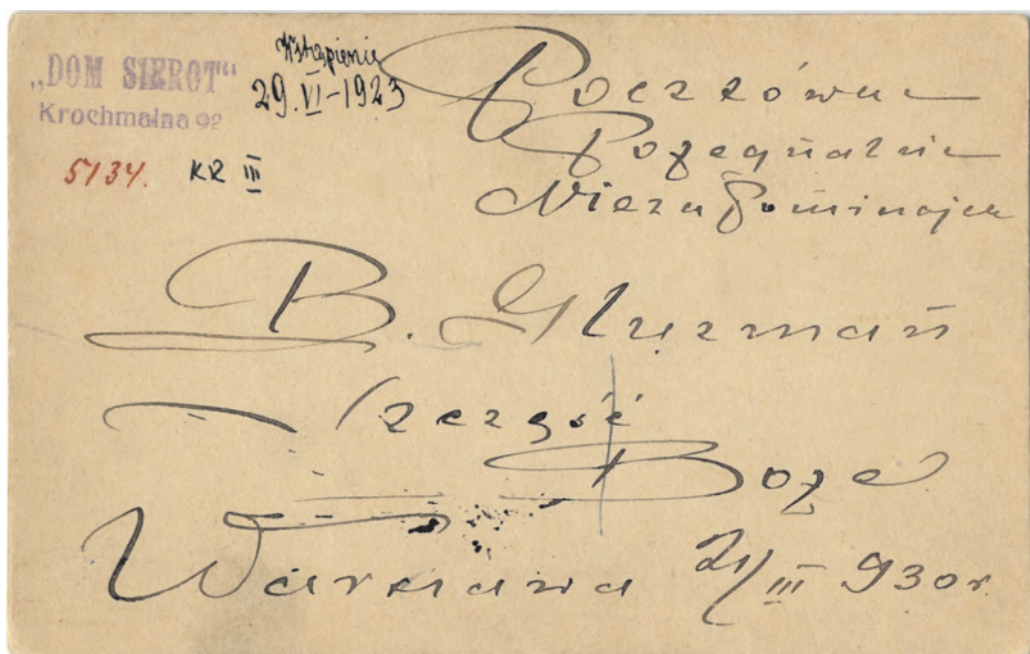 „DOM SIEROT“
Krochmalna 92
Wstąpienie
29. VI-1923
5134. KR III
Pocztówka
Pożegnalna
Niezapominajka
B. Gluzman
Szczęść
Boże
Warszawa 21/III 930 r.